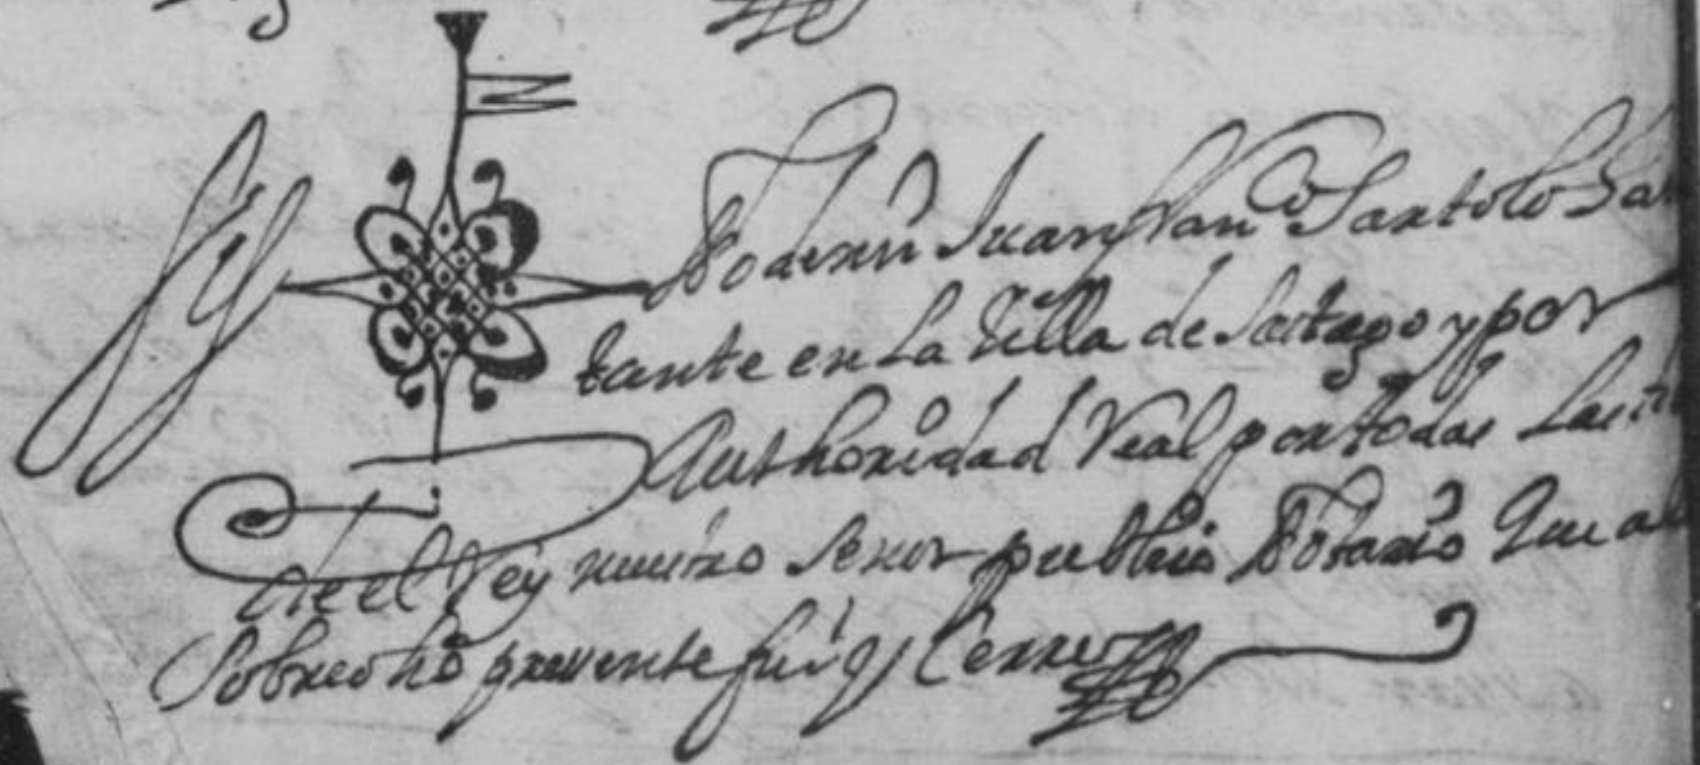 Sig
de mi Juan Franco Santolo Ha
tante en la Villa de y por
Authoridad Real por todas las ti
de el Rey nuestro Senor publico Notario Que a
Sobredho pressente fui y Cerre